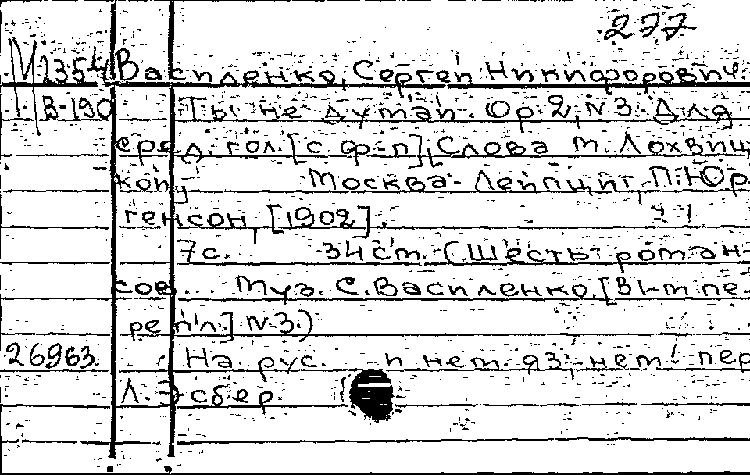 277
М 2354 Василенко, Сергей Никифорович.
В-190 Ты не думай. Ор.2, N3. Для
сред. гол. [с ф-п], Слова М. Лохвиц
кой Москва-Лейпциг, П. Юр
генсон, [1902].
7с. 34 см. (Шесть роман-
сов. Муз. С. Василенко. [В 1-м пе-
репл.] N3.)
26963. На рус. и нем. яз., нем. пер
Л. Эсбер.